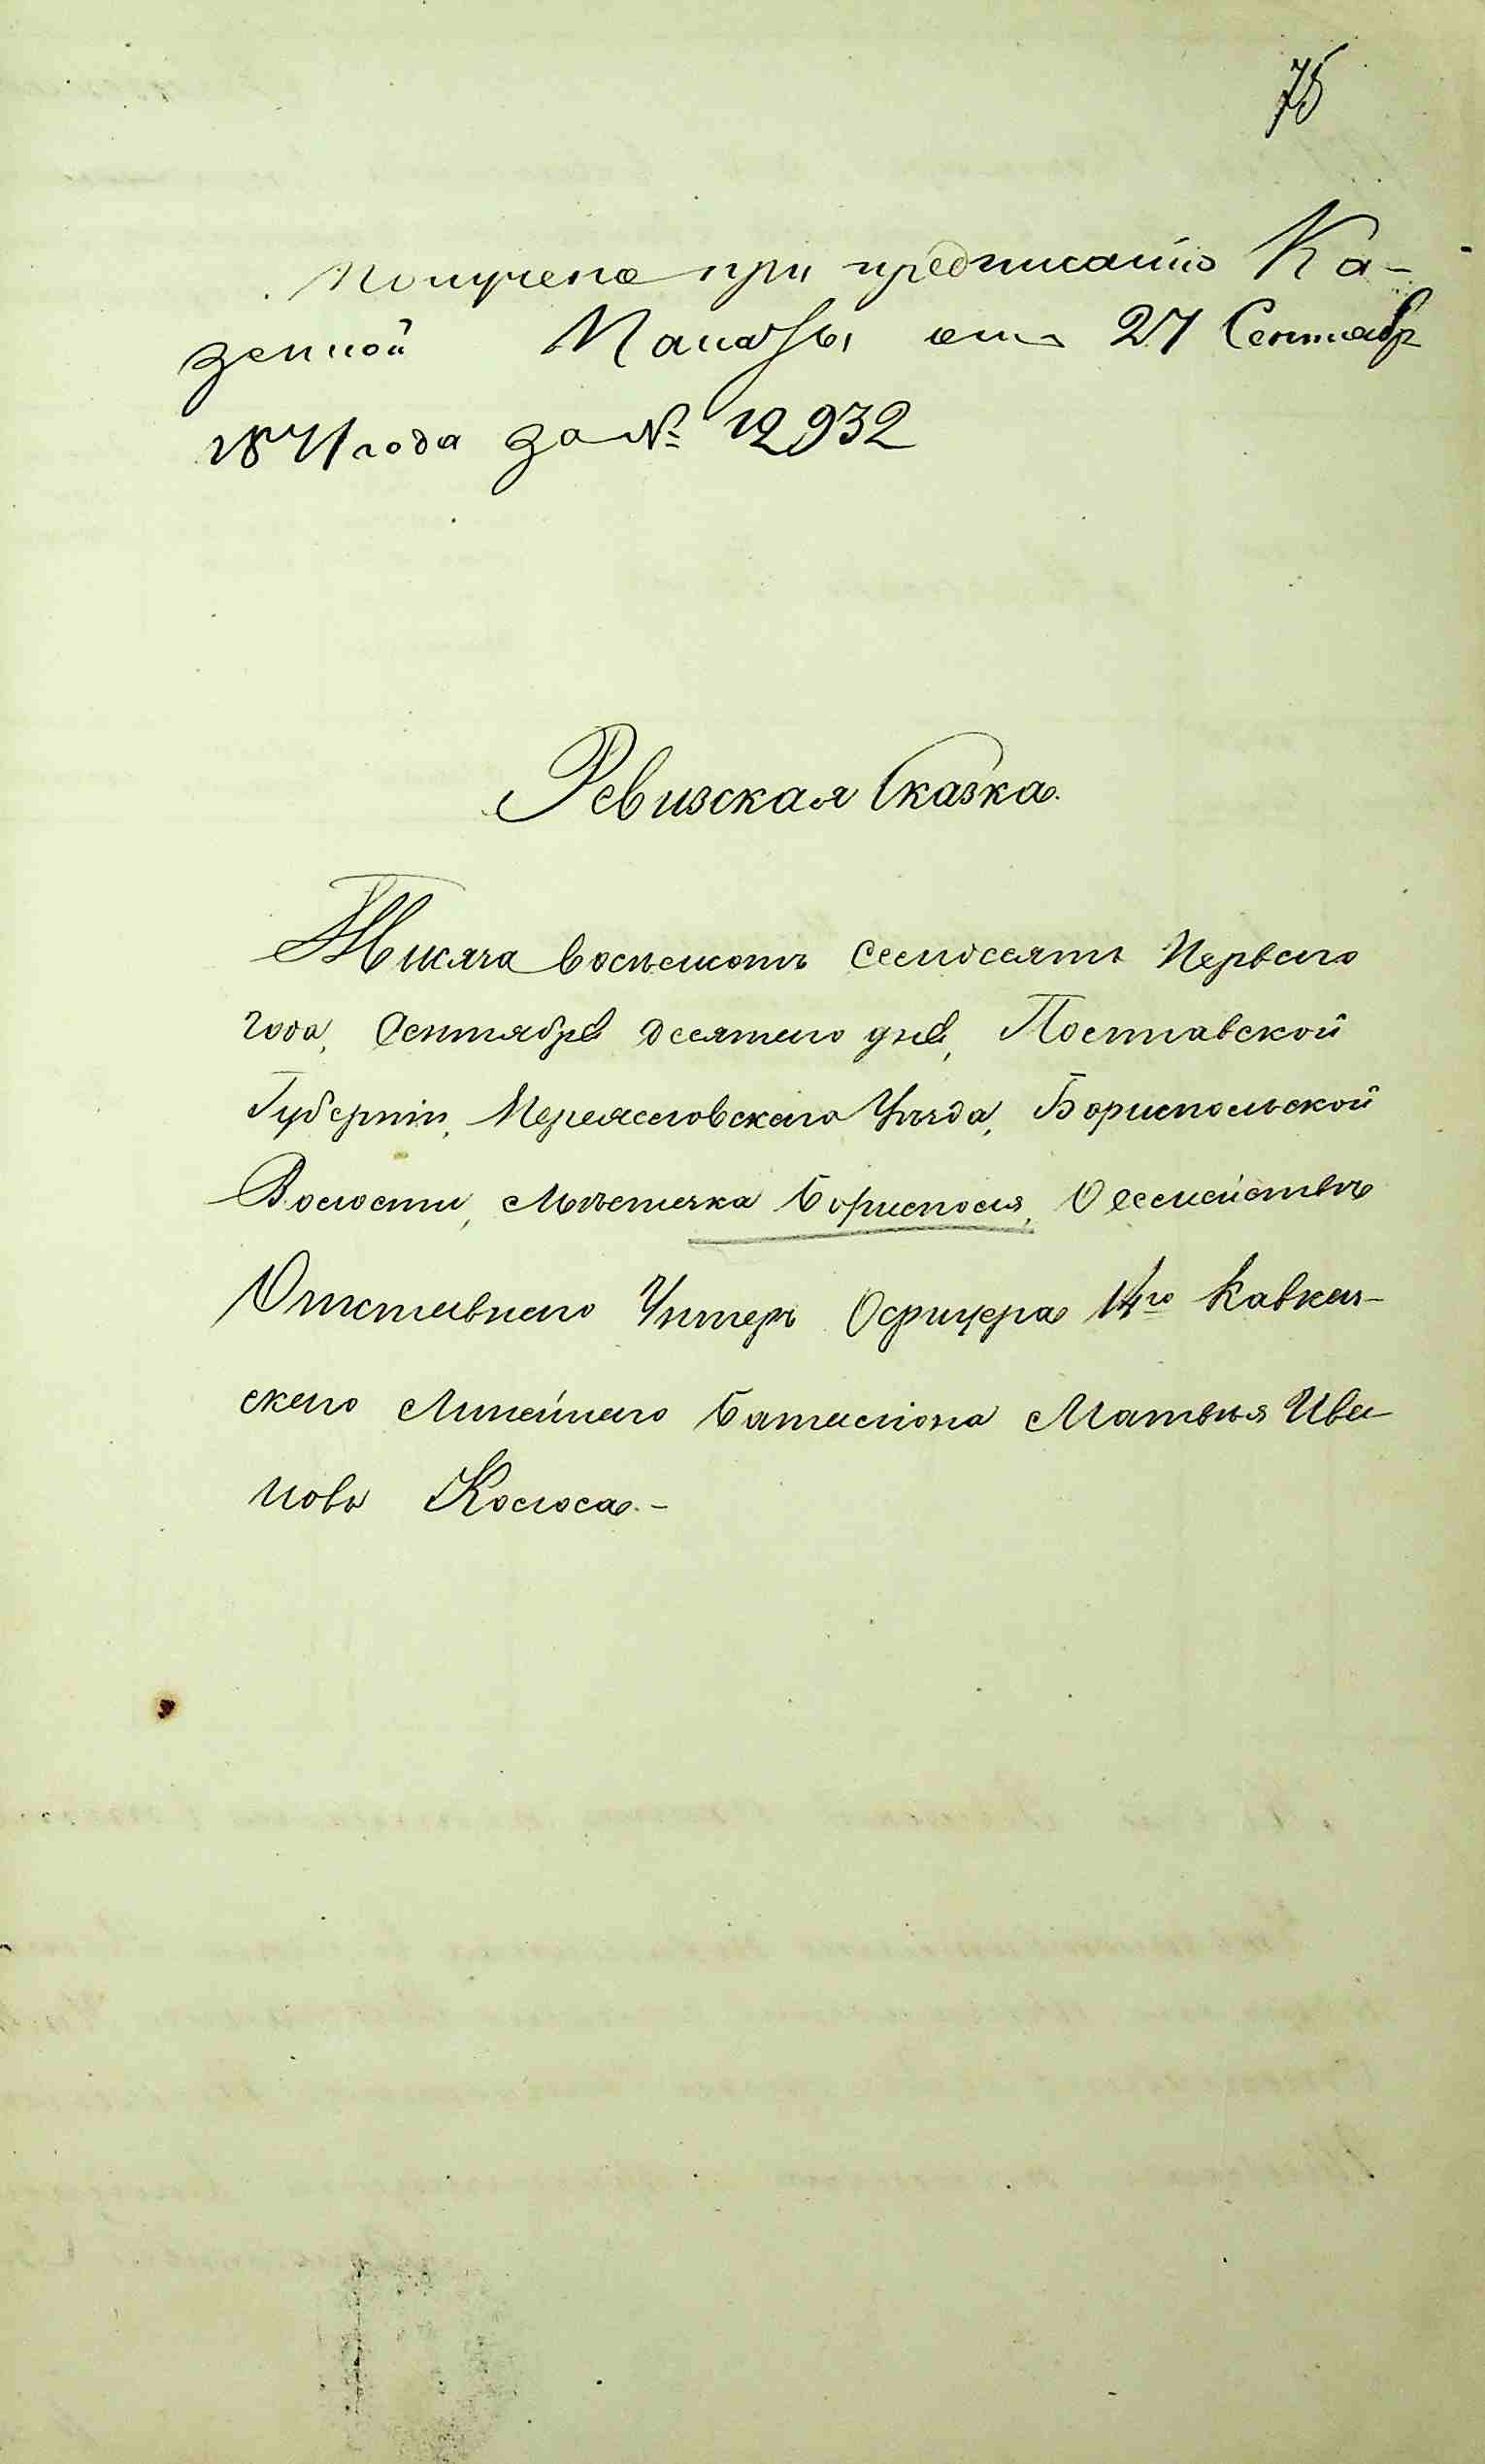 75
Получена при предписанію Ка-
зенной Палаты от 27 Сентабр
1871 года за № 12932
Ревизская Сказка.
Тысяча восемсотъ семдесятъ Первого
года, Сентября десятого дня, Полтавской
Губерніи, Переяславского Уѣзда, Бориспольской
Волости, Мѣстечка Борисполя, О семействѣ
Отставного Унтеръ Офицера 14го Кавказ-
ского Линейного Баталіона Матвѣя Ива-
нова Колоса.-